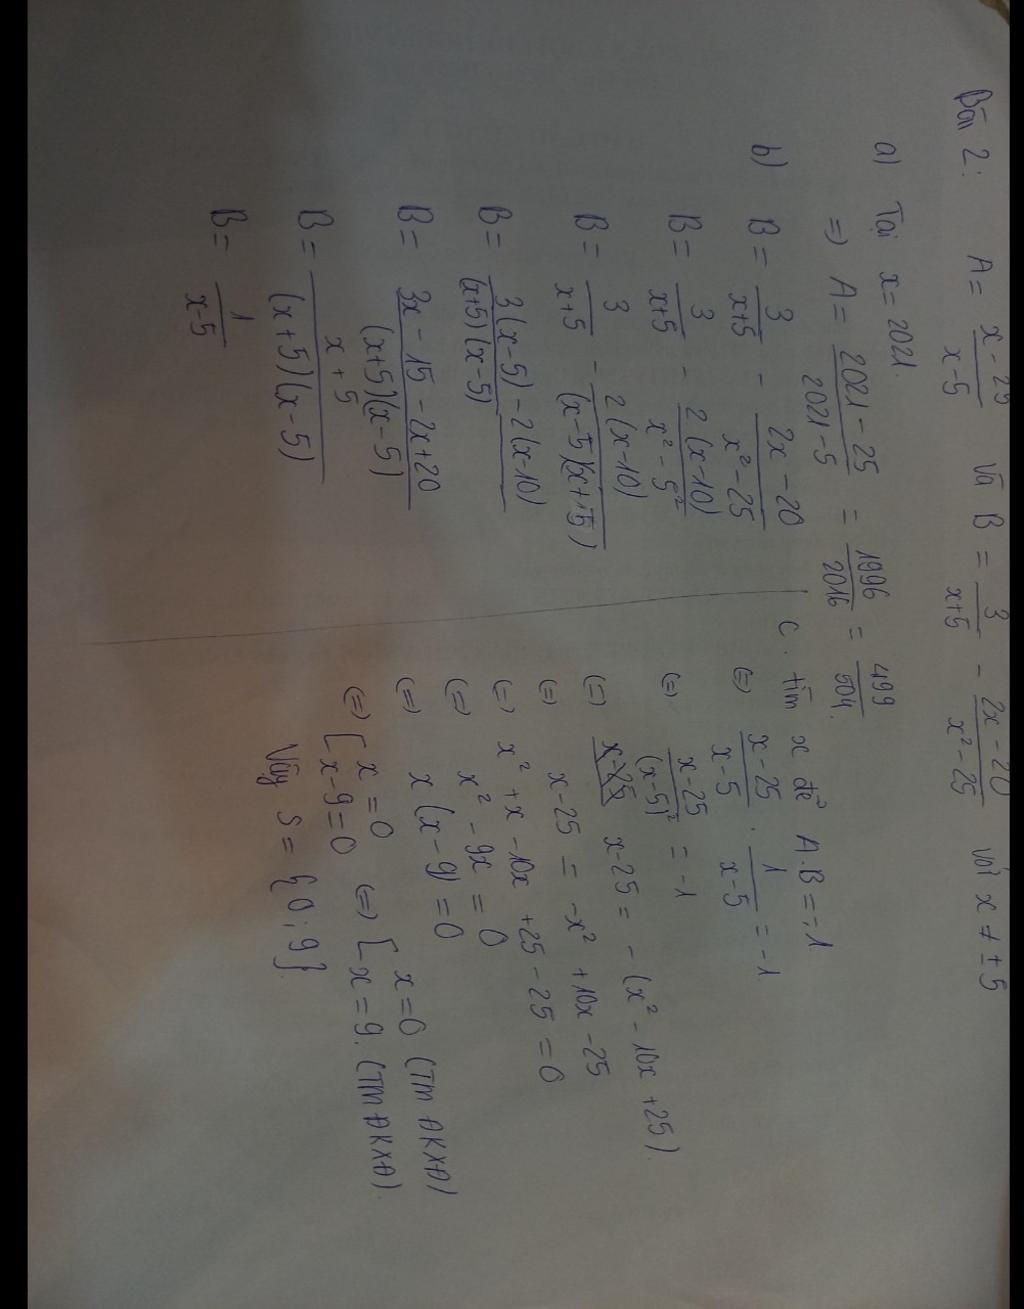 Bài 2: A = \frac{x-25}{x-5} và B = \frac{3}{x+5} - \frac{2x-20}{x^2-25} với x ≠ ±5
a) Tại x = 2021.
=) A = \frac{2021-25}{2021-5} = \frac{1996}{2016} = \frac{499}{504}.
b) B = \frac{3}{x+5} - \frac{2x-20}{x^2-25}
B = \frac{3}{x+5} - \frac{2(x-10)}{x^2-5^2}
B = \frac{3}{x+5} - \frac{2(x-10)}{(x-5)(x+5)}
B = \frac{3(x-5)-2(x-10)}{(x+5)(x-5)}
B = \frac{3x-15-2x+20}{(x+5)(x-5)}
B = \frac{x+5}{(x+5)(x-5)}
B = \frac{1}{x-5}
c. tìm x để A.B = -1
(=) \frac{x-25}{x-5} . \frac{1}{x-5} = -1
(=) \frac{x-25}{(x-5)^2} = -1
(=) x-25 = -(x^2-10x+25).
(=) x-25 = -x^2+10x-25
(=) x^2+x-10x+25-25=0
(=) x^2-9x=0
(=) x(x-9)=0
(=) [x=0 x-9=0 (=) [x=0 (TM ĐKXĐ) x=9. (TM ĐKXĐ).
Vậy S = {0;9}.